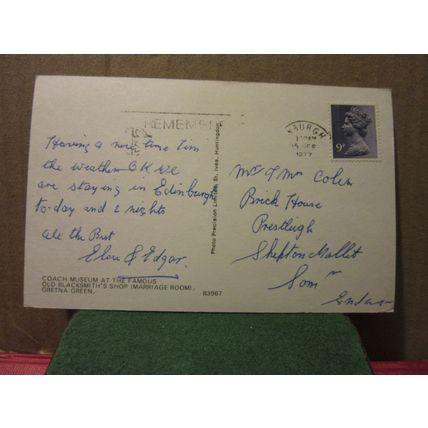 REMEMBER
BURGH
15 SEP
1977
9P
Having a nice time Tim
the weather O.K. we
are staying in Edinburgh
to-day and 2 nights
All the Best
& Edgar.
COACH MUSEUM AT THE FAMOUS
OLD BLACKSMITH'S SHOP (MARRIAGE ROOM).
GRETNA GREEN.
R3967
Photo Precision Limited, St. Ives, Huntingdon.
Mr & Mrs Coles
Brick House
Prestleigh
Shepton Mallet
Som